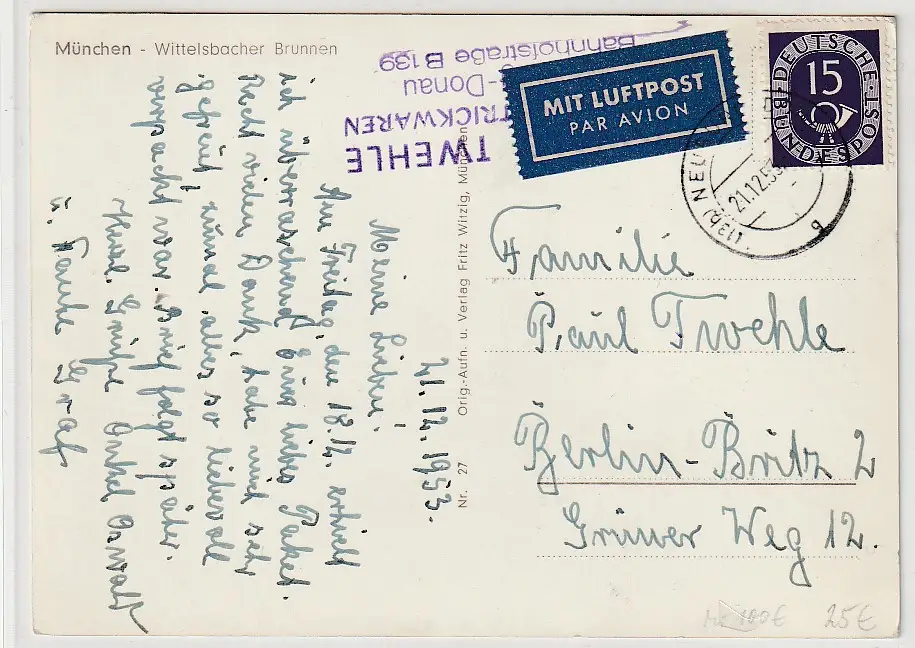 München - Wittelsbacher Brunnen
TWEHLE
TRICKWAREN
-Donau
Bahnhofstraße B 139
MIT LUFTPOST
PAR AVION
DEUTSCHE
BUNDESPOST
15
(13b) NEU
21.12.53
b
21.12.1953.
Meine Lieben!
Am Freitag, den 18.12. erhielt
ich überraschend Euer liebes Paket.
Recht vielen Dank, habe mich sehr
gefreut, zumal alles so liebevoll
verpackt war. Brief folgt später.
Herzl. Grüße Onkel Oswald
u. Tante
Orig.-Aufn. u. Verlag Fritz Witzig, München
Nr. 27
Familie
Paul Twehle
Berlin-Britz 2
Grüner Weg 12.
100€
25€